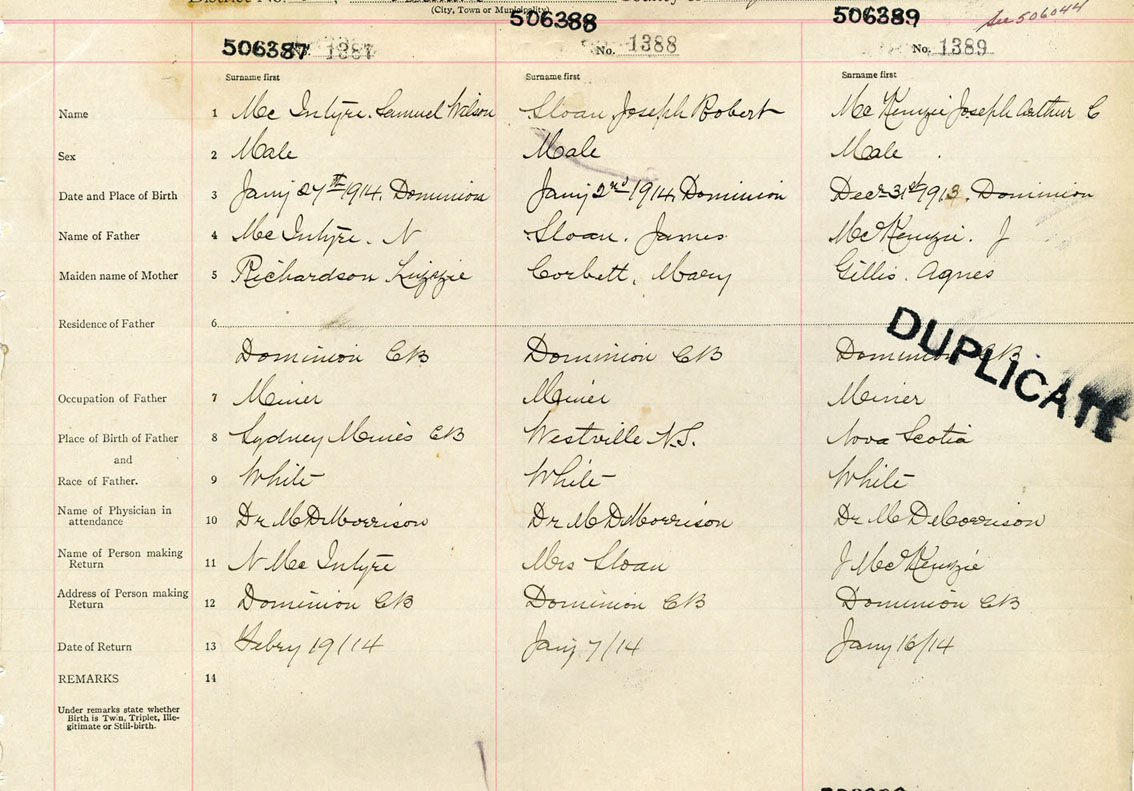 District No.
(City, Town or Municipality)
506387 No. 1387
506388 No. 1388
506389 No. 1389
See 506044
Surname first Surname first Surname first
Name 1 Mc Intyre. Samuel Wilson Sloan Joseph Robert McKenzie Joseph Arthur C
Sex 2 Male Male Male
Date and Place of Birth 3 Jany 27th 1914, Dominion Jany 2nd 1914, Dominion Decr 31st 1913. Dominion
Name of Father 4 Mc Intyre. N Sloan. James McKenzie. J
Maiden name of Mother 5 Richardson Lizzie Corbett, Mary Gillis. Agnes
Residence of Father 6
Dominion CB Dominion CB Dominion CB
DUPLICATE
Occupation of Father 7 Miner Miner Miner
Place of Birth of Father 8 Sydney Mines CB Westville N.S. Nova Scotia
and
Race of Father. 9 White White White
Name of Physician in
attendance 10 Dr M D Morrison Dr M D Morrison Dr M D Morrison
Name of Person making
Return 11 N Mc Intyre Mrs Sloan J McKenzie
Address of Person making
Return 12 Dominion CB Dominion CB Dominion CB
Date of Return 13 Febry 19/14 Jany 7/14 Jany 16/14
REMARKS 14
Under remarks state whether
Birth is Twin, Triplet, Ille-
gitimate or Still-birth.